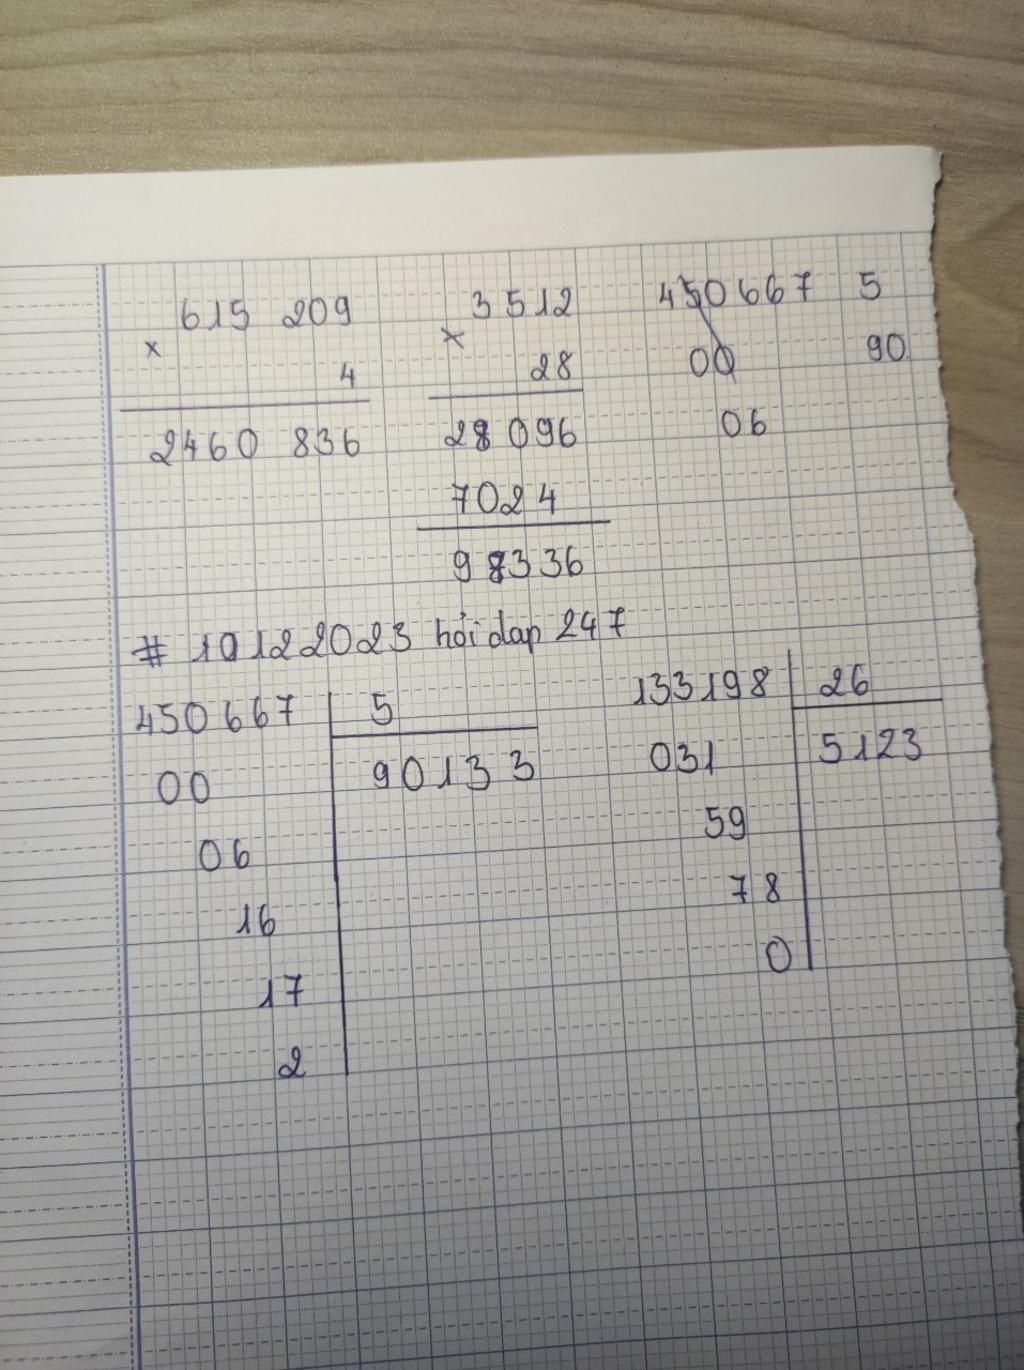 615 209
x
4
2460 836
3512
x
28
28 096
7024
98336
450667 5
00 90
06
# 10122023 hỏi dap 247
450667 5
00 90133
06
16
17
2
133198 26
031 5123
59
78
0